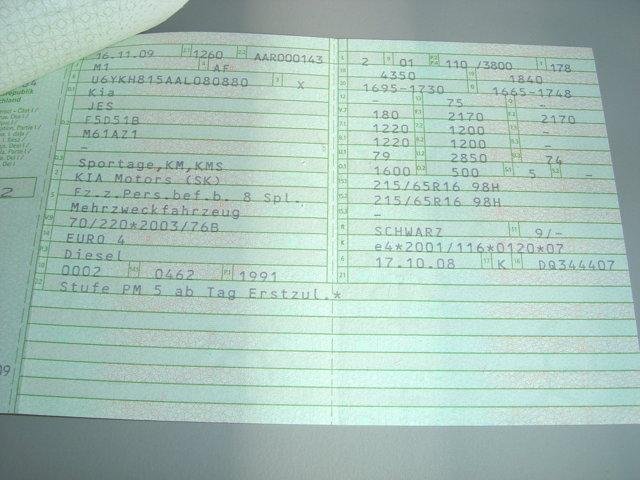 16.11.09 2.1 1260 2.2 AAR000143
M1 AF
U6YKH815AAL080880 3 X
Kia
JES
F5D51B
M61AZ1
-
Sportage,KM,KMS
KIA Motors (SK)
Fz.z.Pers.bef.b. 8 Spl.
Mehrzweckfahrzeug
70/220*2003/76B
EURO 4
Diesel
0002 0462 P.1 1991
Stufe PM 5 ab Tag Erstzul.*
2 01 110 /3800 T 178
4350 1840
1695-1730 1665-1748
- 75 -
180 2170 2170
1220 1200 -
1220 1200 -
79 2850 74
1600 500 S.1 5 S.2 -
215/65R16 98H
215/65R16 98H
-
R SCHWARZ 11 9/-
K e4*2001/116*0120*07
6 17.10.08 17 K 16 DQ344407
21
2